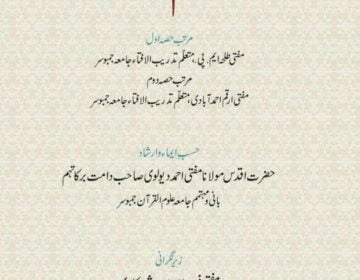 مرتب حصہ اول
مفتی طلحہ ایم. پی.، متعلّم تدریب الافتاء جامعہ جمبوسر
مرتب حصہ دوم
مفتی ارقم احمد آبادی، متعلّم تدریب الافتاء جامعہ جمبوسر
حسب ایماء و ارشاد
حضرت اقدس مولانا مفتی احمد دیولوی صاحب دامت برکاتہم
بانی و مہتمم جامعہ علوم القرآن جمبوسر
زیر نگرانی